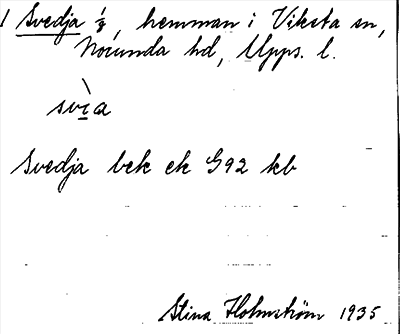 1 Svedja ½, hemman i Viksta sn,
Norunda hd, Upps. l.
svìa
Svedja bek ek G92 kb
Stina Holmström 1935